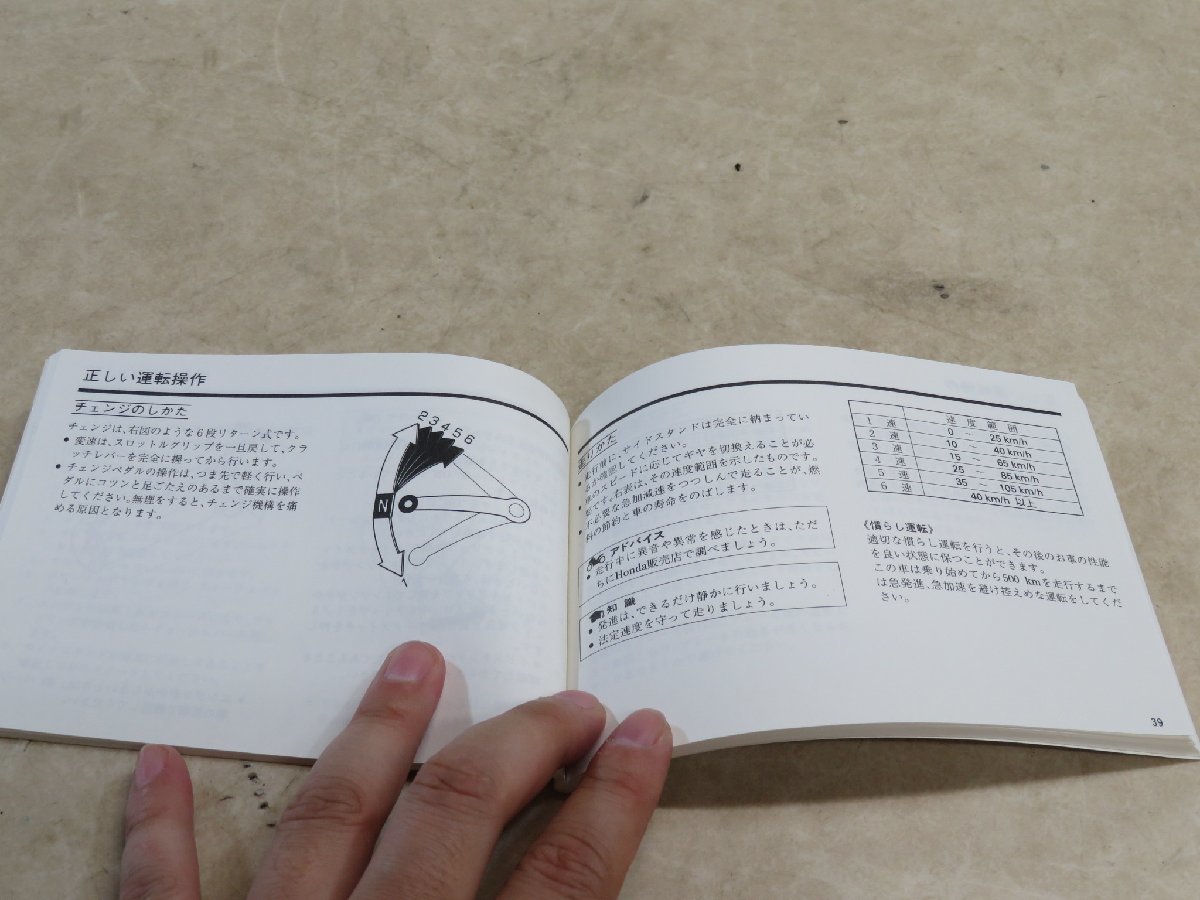 正しい運転操作
チェンジのしかた
チェンジは、右図のような6段リターン式です。
• 変速は、スロットルグリップを一旦戻して、クラ
ッチレバーを完全に握ってから行います。
• チェンジペダルの操作は、つま先で軽く行い、ペ
ダルにコツンと足ごたえのあるまで確実に操作
してください。無理をすると、チェンジ機構を痛
める原因となります。
23456
N
1
走りかた
• 走行前に、サイドスタンドは完全に納まってい
るか確認してください。
車のスピードに応じてギヤを切換えることが必
要です。右表は、その速度範囲を示したものです。
• 不必要な急加減速をつつしんで走ることが、燃
料の節約と車の寿命をのばします。
アドバイス
• 走行中に異音や異常を感じたときは、ただ
ちにHonda販売店で調べましょう。
知識
• 発進は、できるだけ静かに行いましょう。
• 法定速度を守って走りましょう。
速度範囲
1 速 0 ~ 25 km/h
2 速 10 ~ 40 km/h
3 速 15 ~ 65 km/h
4 速 25 ~ 85 km/h
5 速 35 ~ 105 km/h
6 速 40 km/h 以上
《慣らし運転》
適切な慣らし運転を行うと、その後のお車の性能
を良い状態に保つことができます。
この車は乗り始めてから500 kmを走行するまで
は急発進、急加速を避け控えめな運転をしてくだ
さい。
39